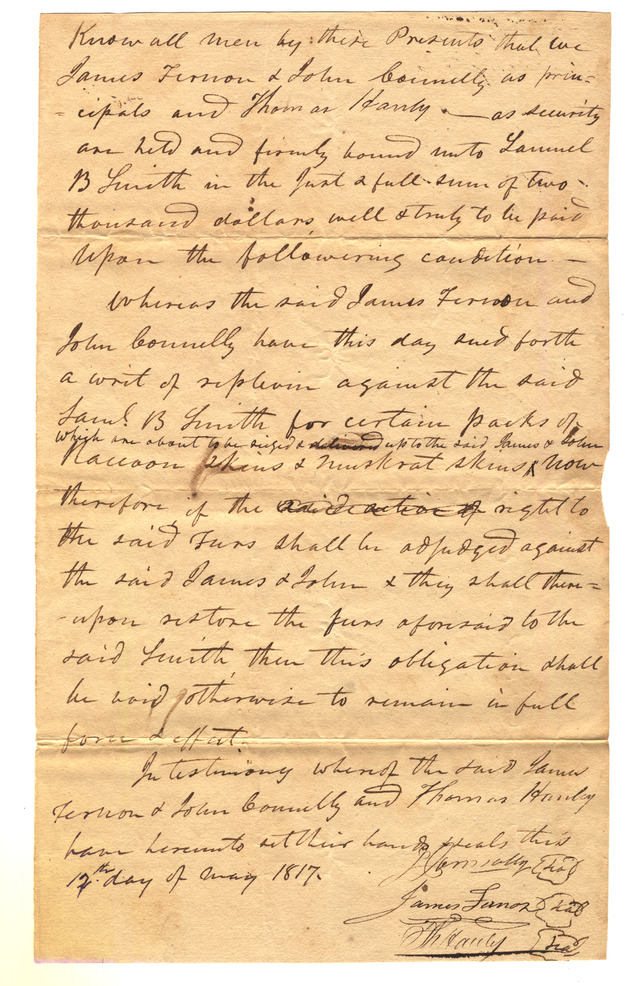 Know all men by these Presents that we
James Fernon & John Connelly as prin=
=cipals and Thomas Hanly — as security
are held and firmly bound unto Samuel
B Smith in the Just & full sum of two
thousand dollars, well & truly to be paid
upon the followering condition. —
Whereas the said James Fernon and
John Connelly have this day sued forth
a writ of replevin against the said
Saml. B Smith for certain packs of
which are about to be seized & delivered up to the said James & John
Raccoon skins & muskrat skins ^ now
therefore, if the said action of right to
the said Furs shall be adjudged against
the said James & John & they shall there=
-upon restore the furs aforesaid to the
said Smith then this obligation shall
be void otherwise to remain in full
force & effect.
In testimony whereof the said James
Fernon & John Connelly and Thomas Hanly
have hereunto set their hands & seals this
12th day of may 1817.
J Connolly Seal
James Fernon Seal
Th Hanly Seal